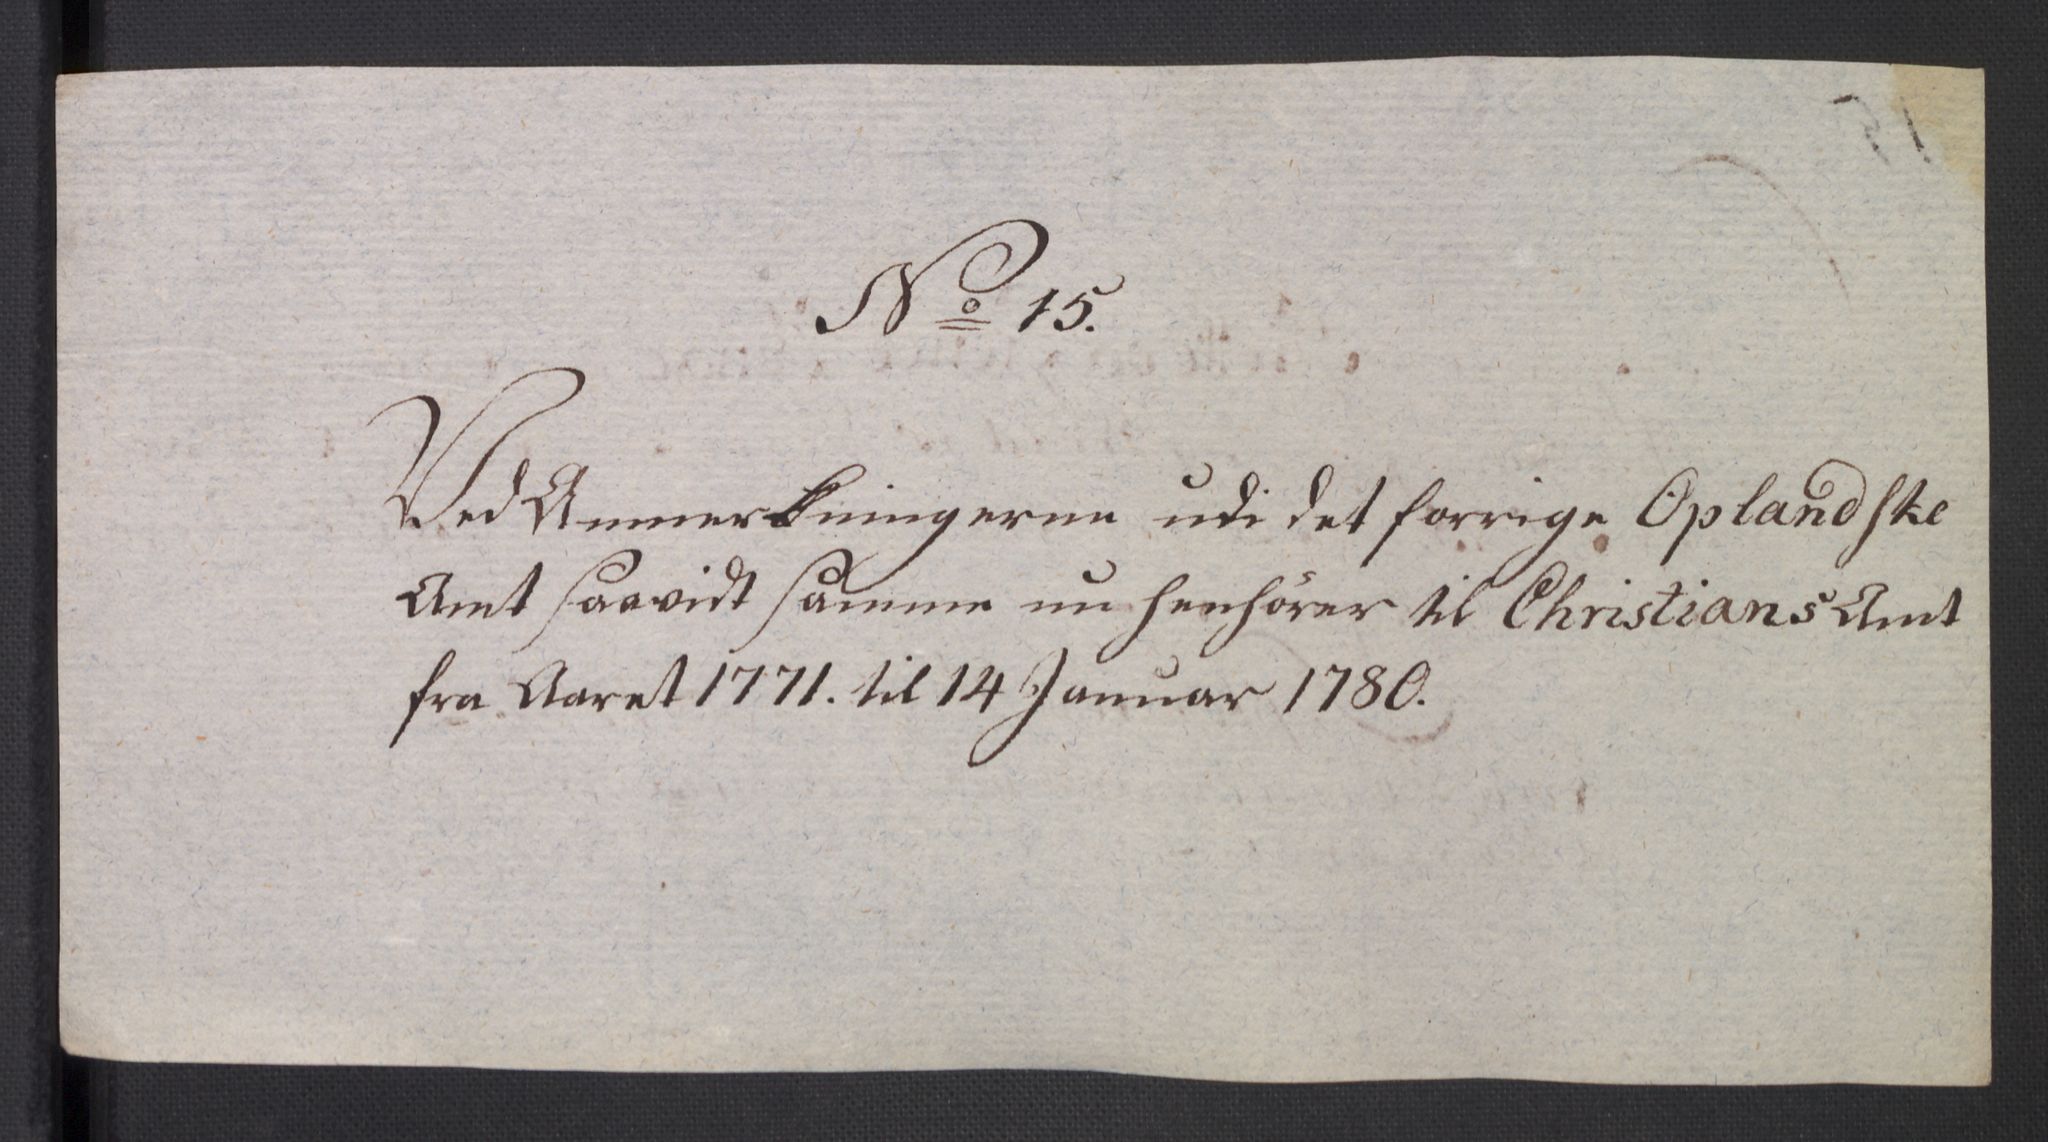 No 15.
Ved Anmerkningerne udi det forrige Oplandske
Amt saavidt samme nu henhörer til Christians Amt
fra Aaret 1771. til 14 Januar 1780.